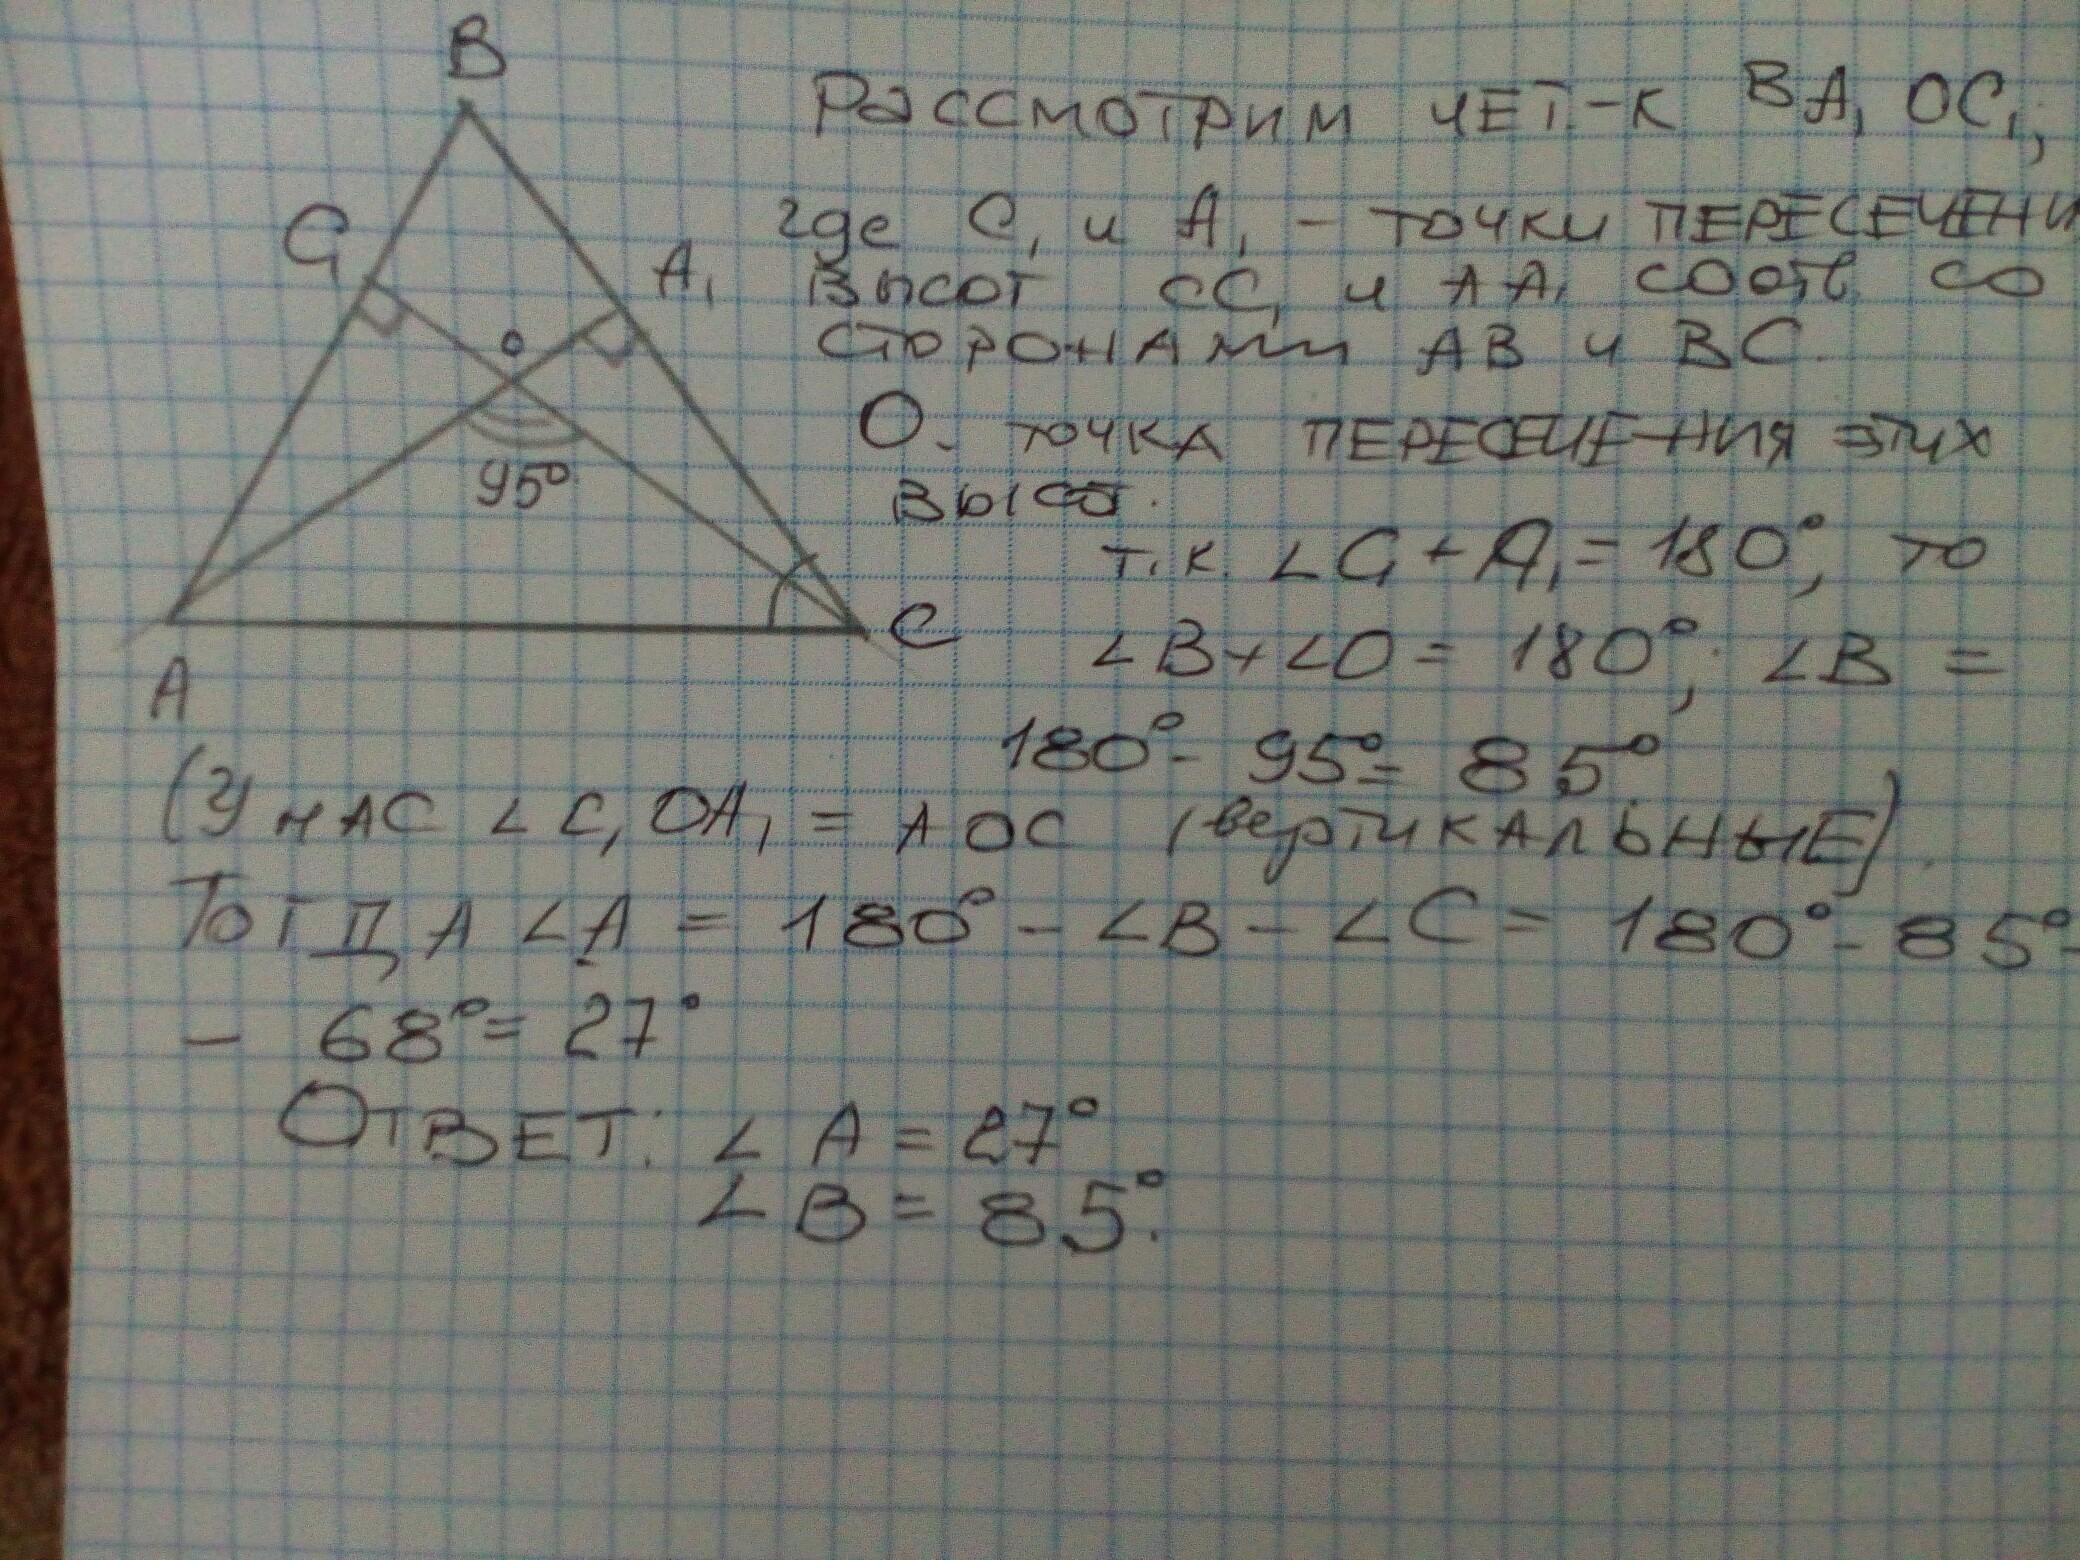 B
C₁
A₁
O
95°
A
C
Рассмотрим чет-к BA₁OC₁,
где C₁ и A₁ - точки пересечени
высот CC₁ и AA₁ соотв. со
сторонами AB и BC.
O - точка пересечения этих
высот.
т.к. ∠C₁ + A₁ = 180°, то
∠B + ∠O = 180°; ∠B =
180° - 95° = 85°
(У нас ∠C₁OA₁ = AOC (вертикальные).
Тогда ∠A = 180° - ∠B - ∠C = 180° - 85° -
- 68° = 27°
Ответ: ∠A = 27°
∠B = 85°.